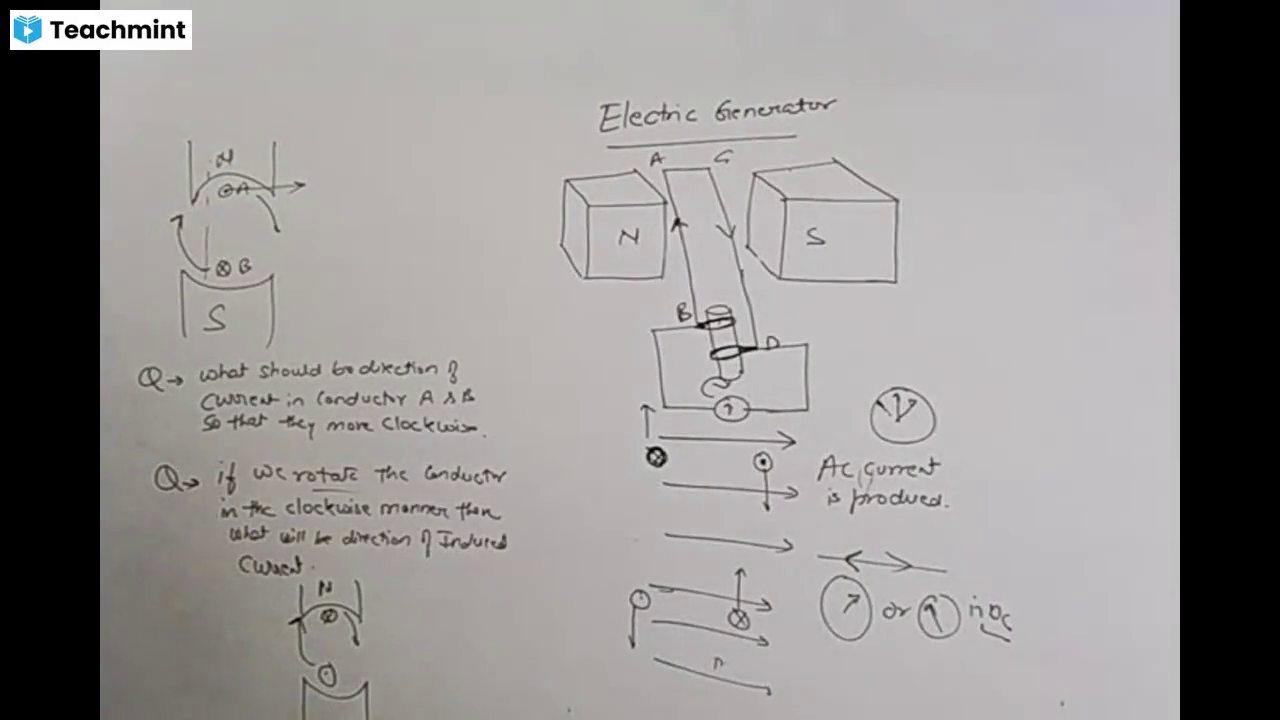 Teachmint
Electric Generator
A C
N S
B D
N
A
B
S
Q→ what should be direction of
current in conductor A & B
so that they move clockwise.
Q→ if we rotate the conductor
in the clockwise manner then
what will be direction of Induced
Current.
N
AC current
is produced.
or in DC